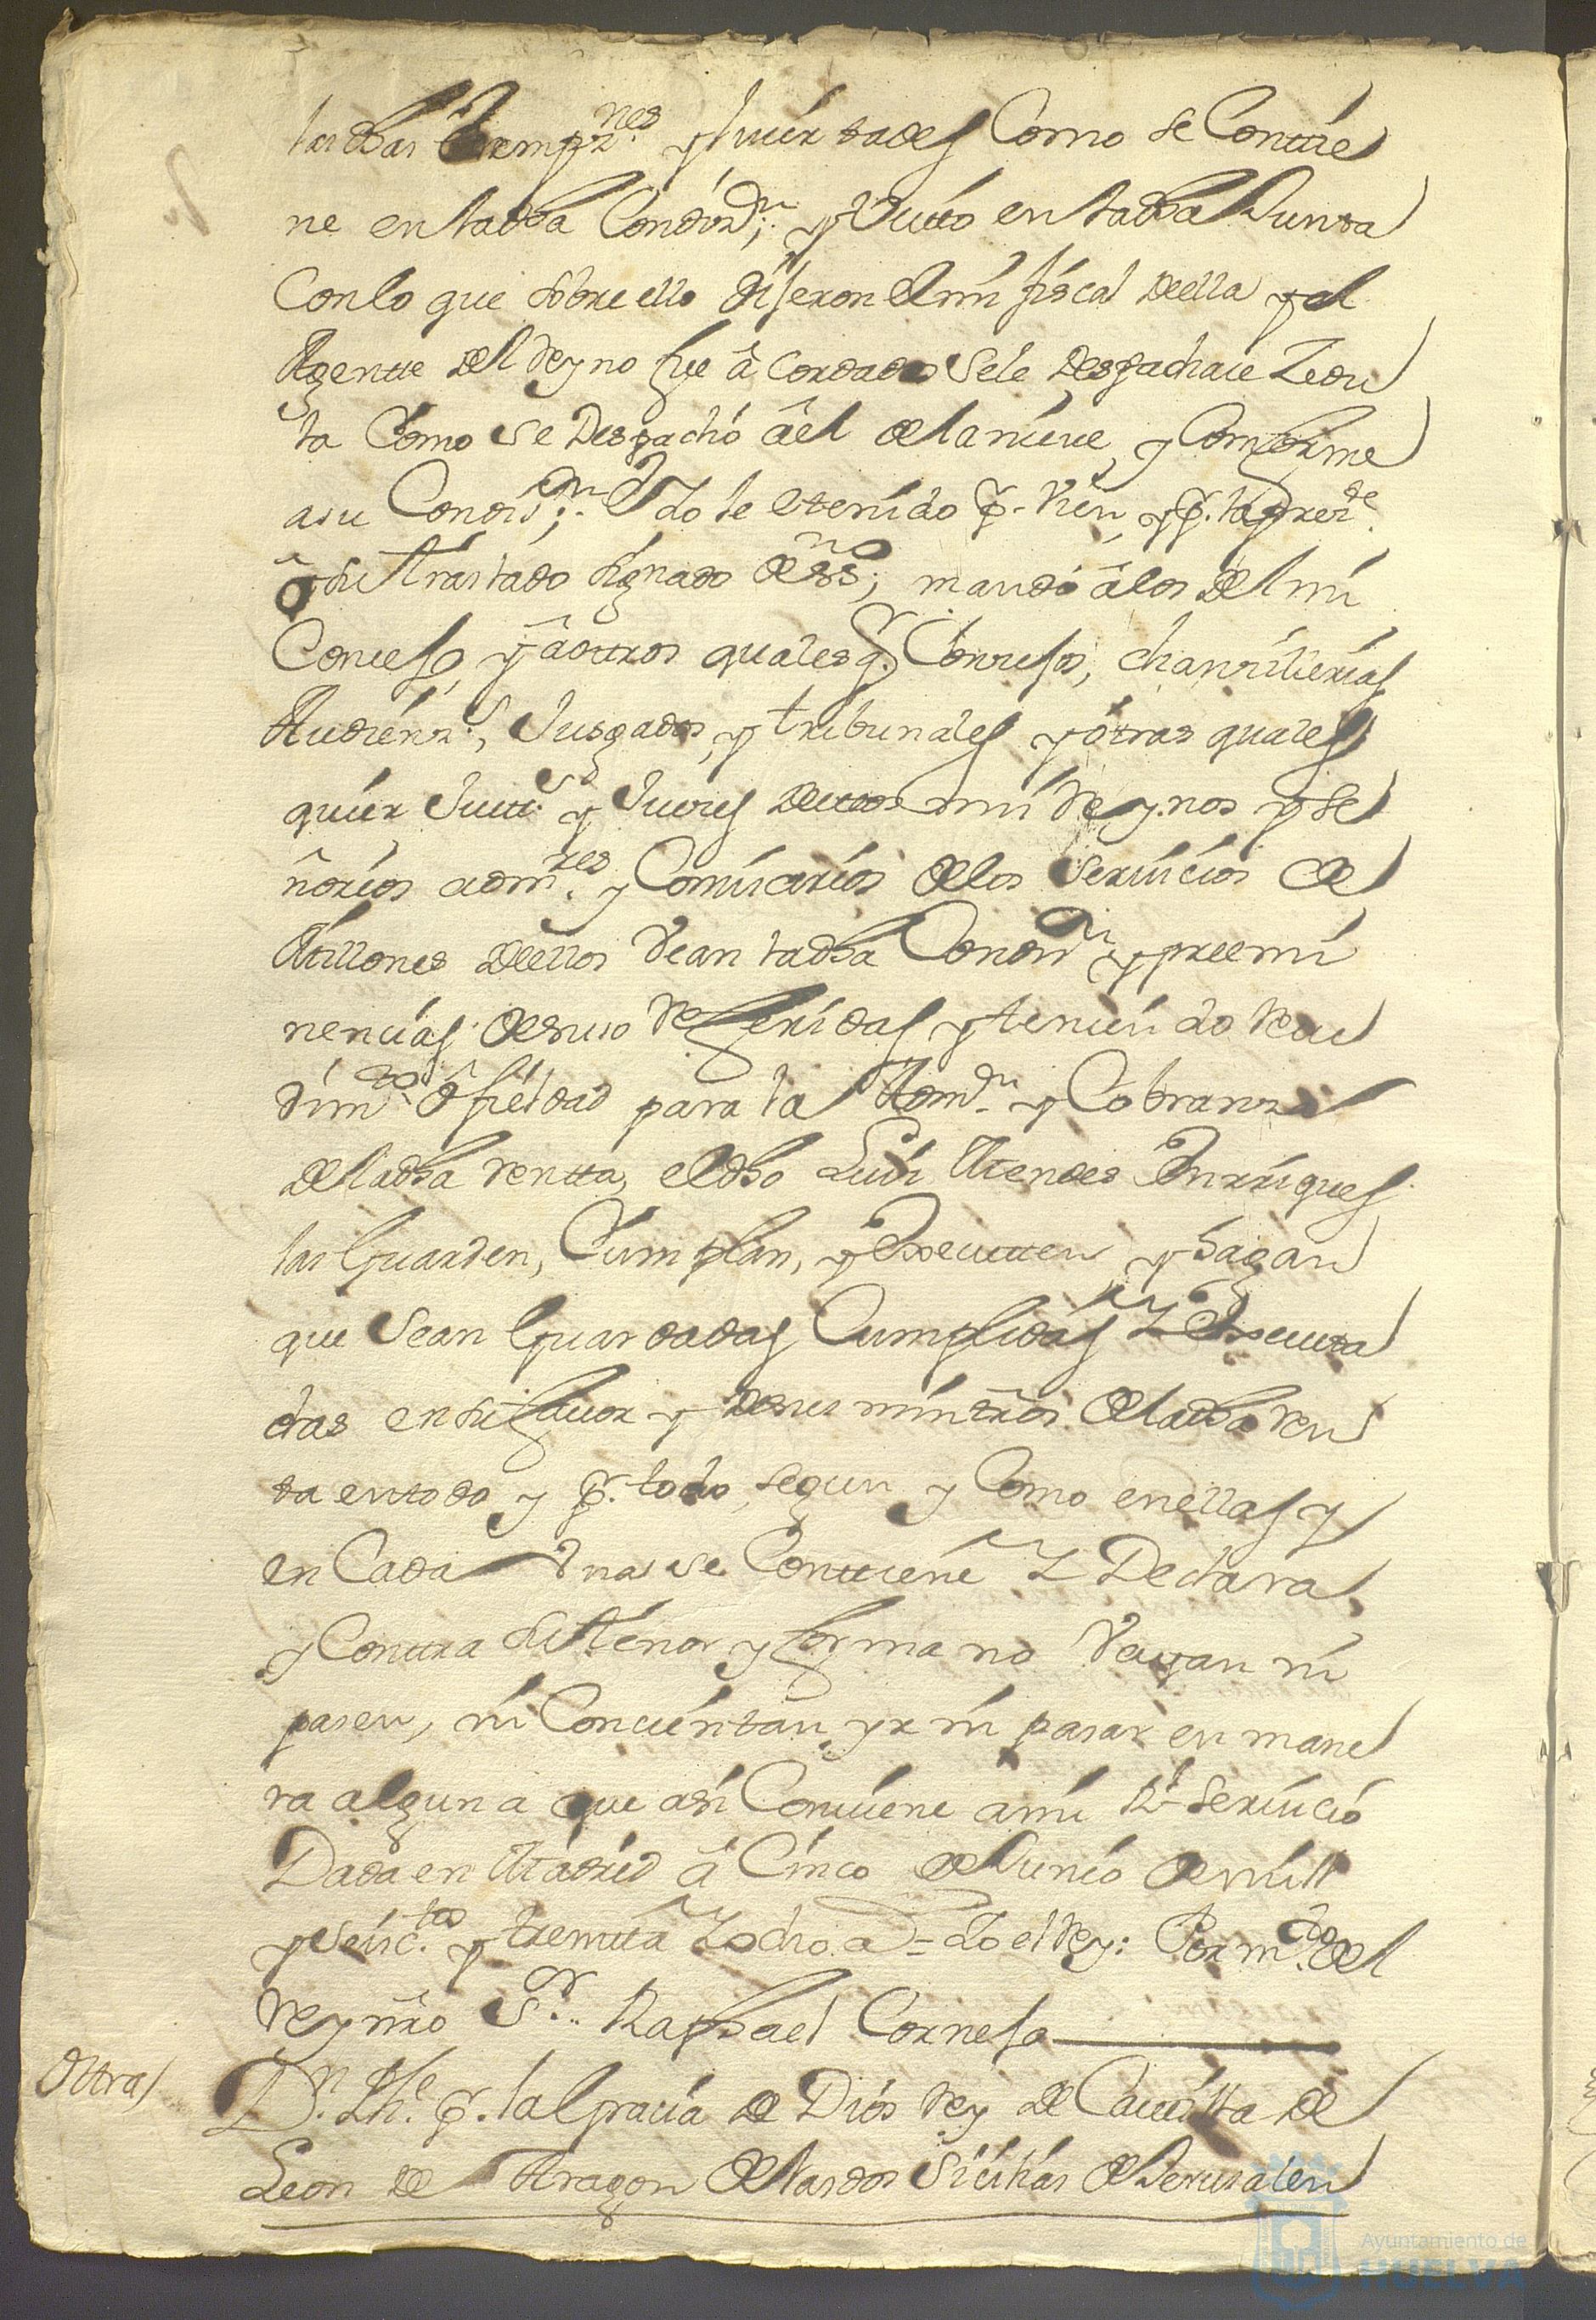 las dhas Exempz.nes y livertades Como se Contie
ne en la dha Condiz.n; y Visto en la dha Junta
Con lo que sobre ello dijeron el mi fiscal de ella y el
Agente del Reyno fue âcordado se le Despachase Zedu
la Como se Despachó âel de la nieve, y Comforme
a su Condiz.n; E Yo le e tenido p.r vien, y p.r la pres.te
ô su traslado signado de ss.no; mando â los del mi
Consejo, y âottros quales q.r Consejos, chanzillerias
Audienz.s, Jusgados, y tribunales y otras quales
quier Justt.s y Jueses destos mis Reynos y Se
ñorios adm.res y Comisarios de los Servicios de
Millones dellos Vean la dha Condiz.n y preemi
nencias de suso Referidas y teniendo Recu
dim.to ô fieldad para la Adm.n y Cobranza
de la dha Rentta, el dho Luis Mendes Enrriques
las Guarden, Cumplan, y Executten y hagan
que Sean Guardadas Cumplidas Y Executa
das en su favor y de sus ministros de la dha Ren
ta en todo y p.r todo, segun y Como en ellas y
en Cada Vna se Conttiene Y Declara
y Contra su tenor y forma no Vayan ni
pasen, ni Concientan yr ni pasar en mane
ra alguna que asi Conviene a mi R.l Servicio
Dada en Madrid â Cinco de Junio de mill
y seisc.tos y treintta Y ocho a.s = Yo el Rey: Por m.do del
Rey nro S.r Raphael Cornejo
Ottra D.n Ph.e p.r la Gracia de Dios Rey de Castilla de
Leon de Aragon de las dos Sicilias de Jerusalen
Ayuntamiento de
HUELVA